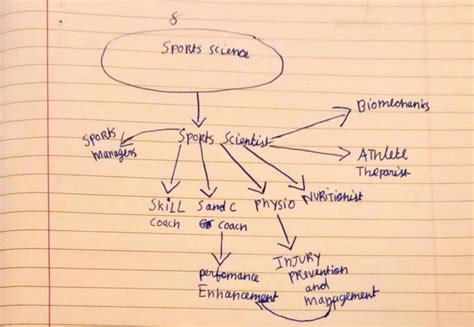 8
Sports science
Biomechanics
Sports
Managers
Sports Scientist
Athlete
Theparist
Skill
coach
S and C
coach
Physio
Nuritionist
perfomance
Enhancement
Injury
prevention
and
management